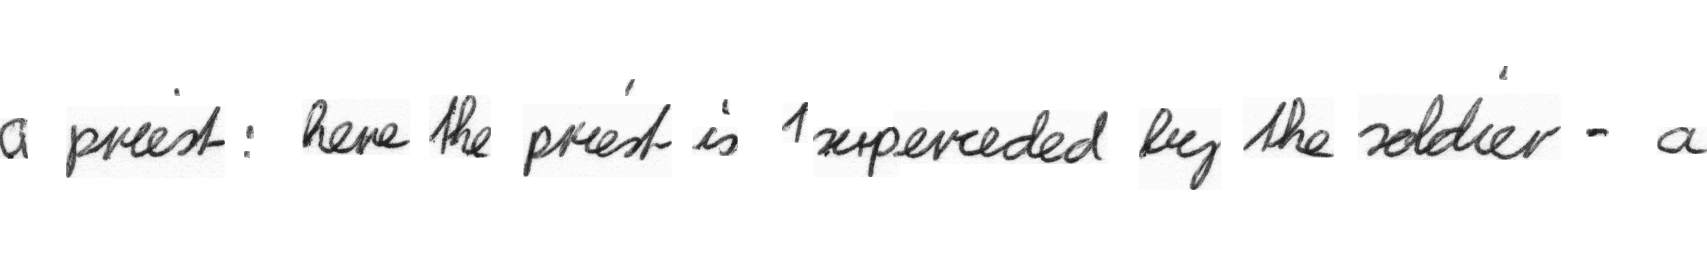 a priest: here the priest is 1superceded by the soldier - a